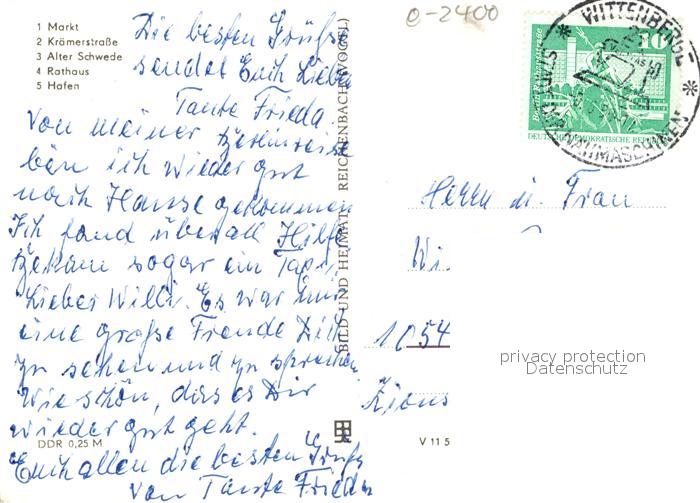 e-2400
1 Markt
2 Krämerstraße
3 Alter Schwede
4 Rathaus
5 Hafen
Die besten Grüße
sendet Euch Lieben
Tante Frieda
Von meiner
bin ich wieder gut
nach Hause gekommen
Ich fand überall Hilfe
bekam sogar ein
Lieber Willi. Es war mir
eine große Freude Dich
zu sehen und zu sprechen
wie schön, dass es Dir
wieder gut geht.
Euch allen die besten Grüße
von Tante Frieda
DDR 0,25 M
BILD UND HEIMAT REICHENBACH (VOGTL)
V 11 5
10
DEUTSCHE DEMOKRATISCHE REPUBLIK
WITTENBERGE
NÄHMASCHINEN
Herrn u. Frau
Wi.
1054
Zions
privacy protection
Datenschutz